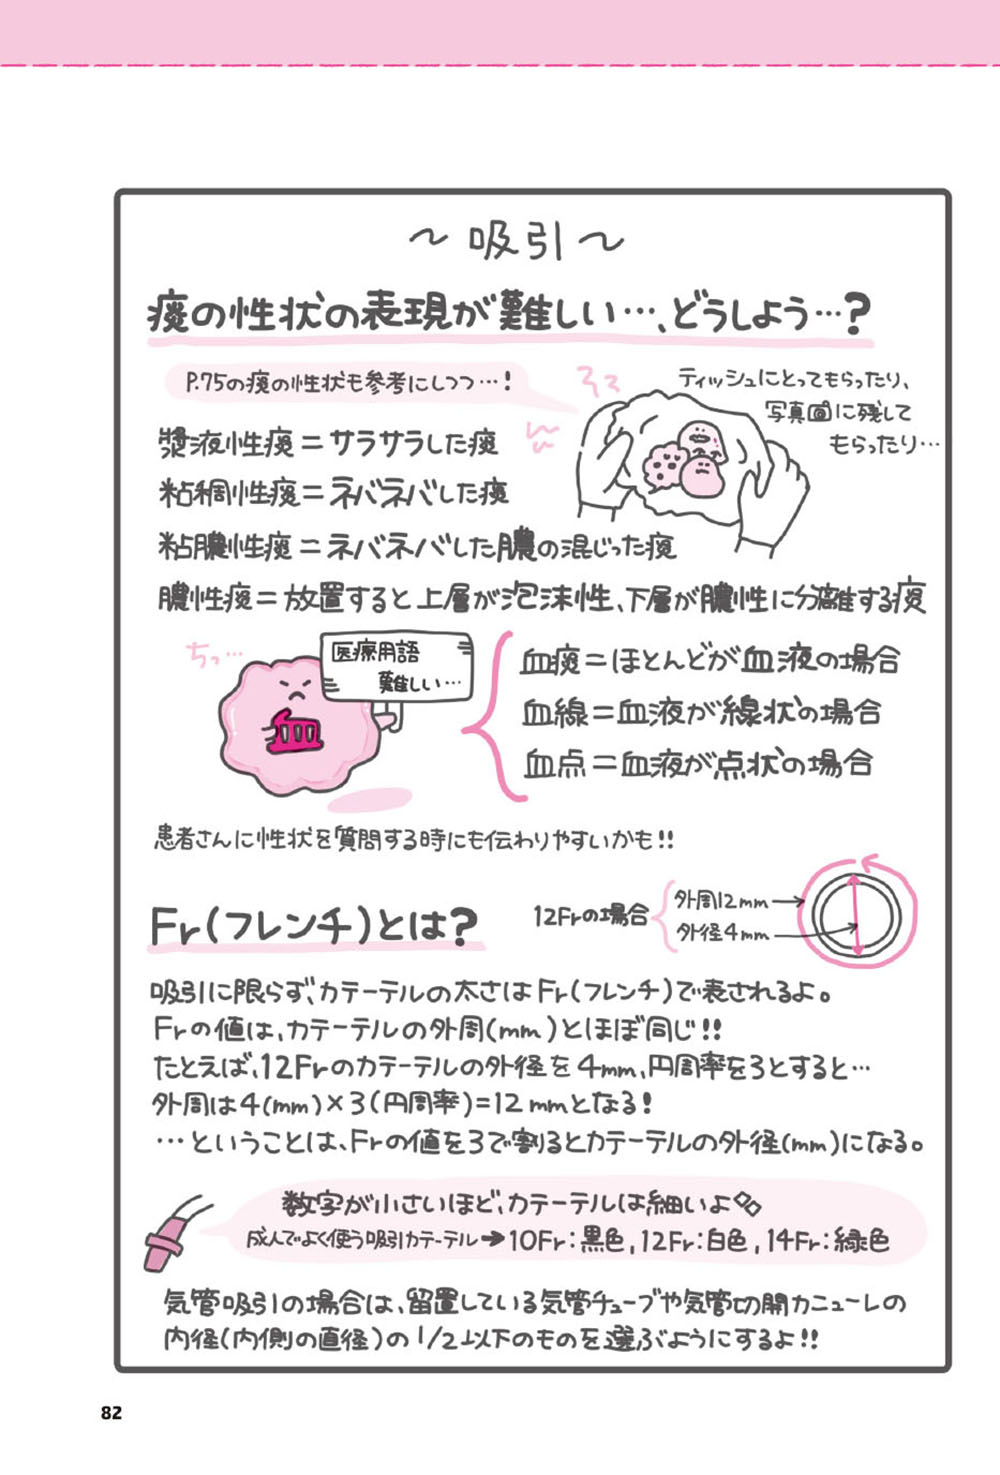 ～吸引～
痰の性状の表現が難しい…、どうしよう…?
P.75の痰の性状も参考にしつつ…!
ティッシュにとってもらったり、
写真画に残して
もらったり…
漿液性痰＝サラサラした痰
粘稠性痰＝ネバネバした痰
粘膿性痰＝ネバネバした膿の混じった痰
膿性痰＝放置すると上層が泡沫性、下層が膿性に分離する痰
ちっ…
医療用語
難しい…
血
血痰＝ほとんどが血液の場合
血線＝血液が線状の場合
血点＝血液が点状の場合
患者さんに性状を質問する時にも伝わりやすいかも!!
Fr(フレンチ)とは?
12Frの場合
外周12mm
外径4mm
吸引に限らず、カテーテルの太さはFr(フレンチ)で表されるよ。
Frの値は、カテーテルの外周(mm)とほぼ同じ!!
たとえば、12Frのカテーテルの外径を4mm、円周率を3とすると…
外周は4(mm)×3(円周率)=12mmとなる!
…ということは、Frの値を3で割るとカテーテルの外径(mm)になる。
数字が小さいほど、カテーテルは細いよ
成人でよく使う吸引カテーテル➔10Fr:黒色,12Fr:白色,14Fr:緑色
気管吸引の場合は、留置している気管チューブや気管切開カニューレの
内径(内側の直径)の1/2以下のものを選ぶようにするよ!!
82